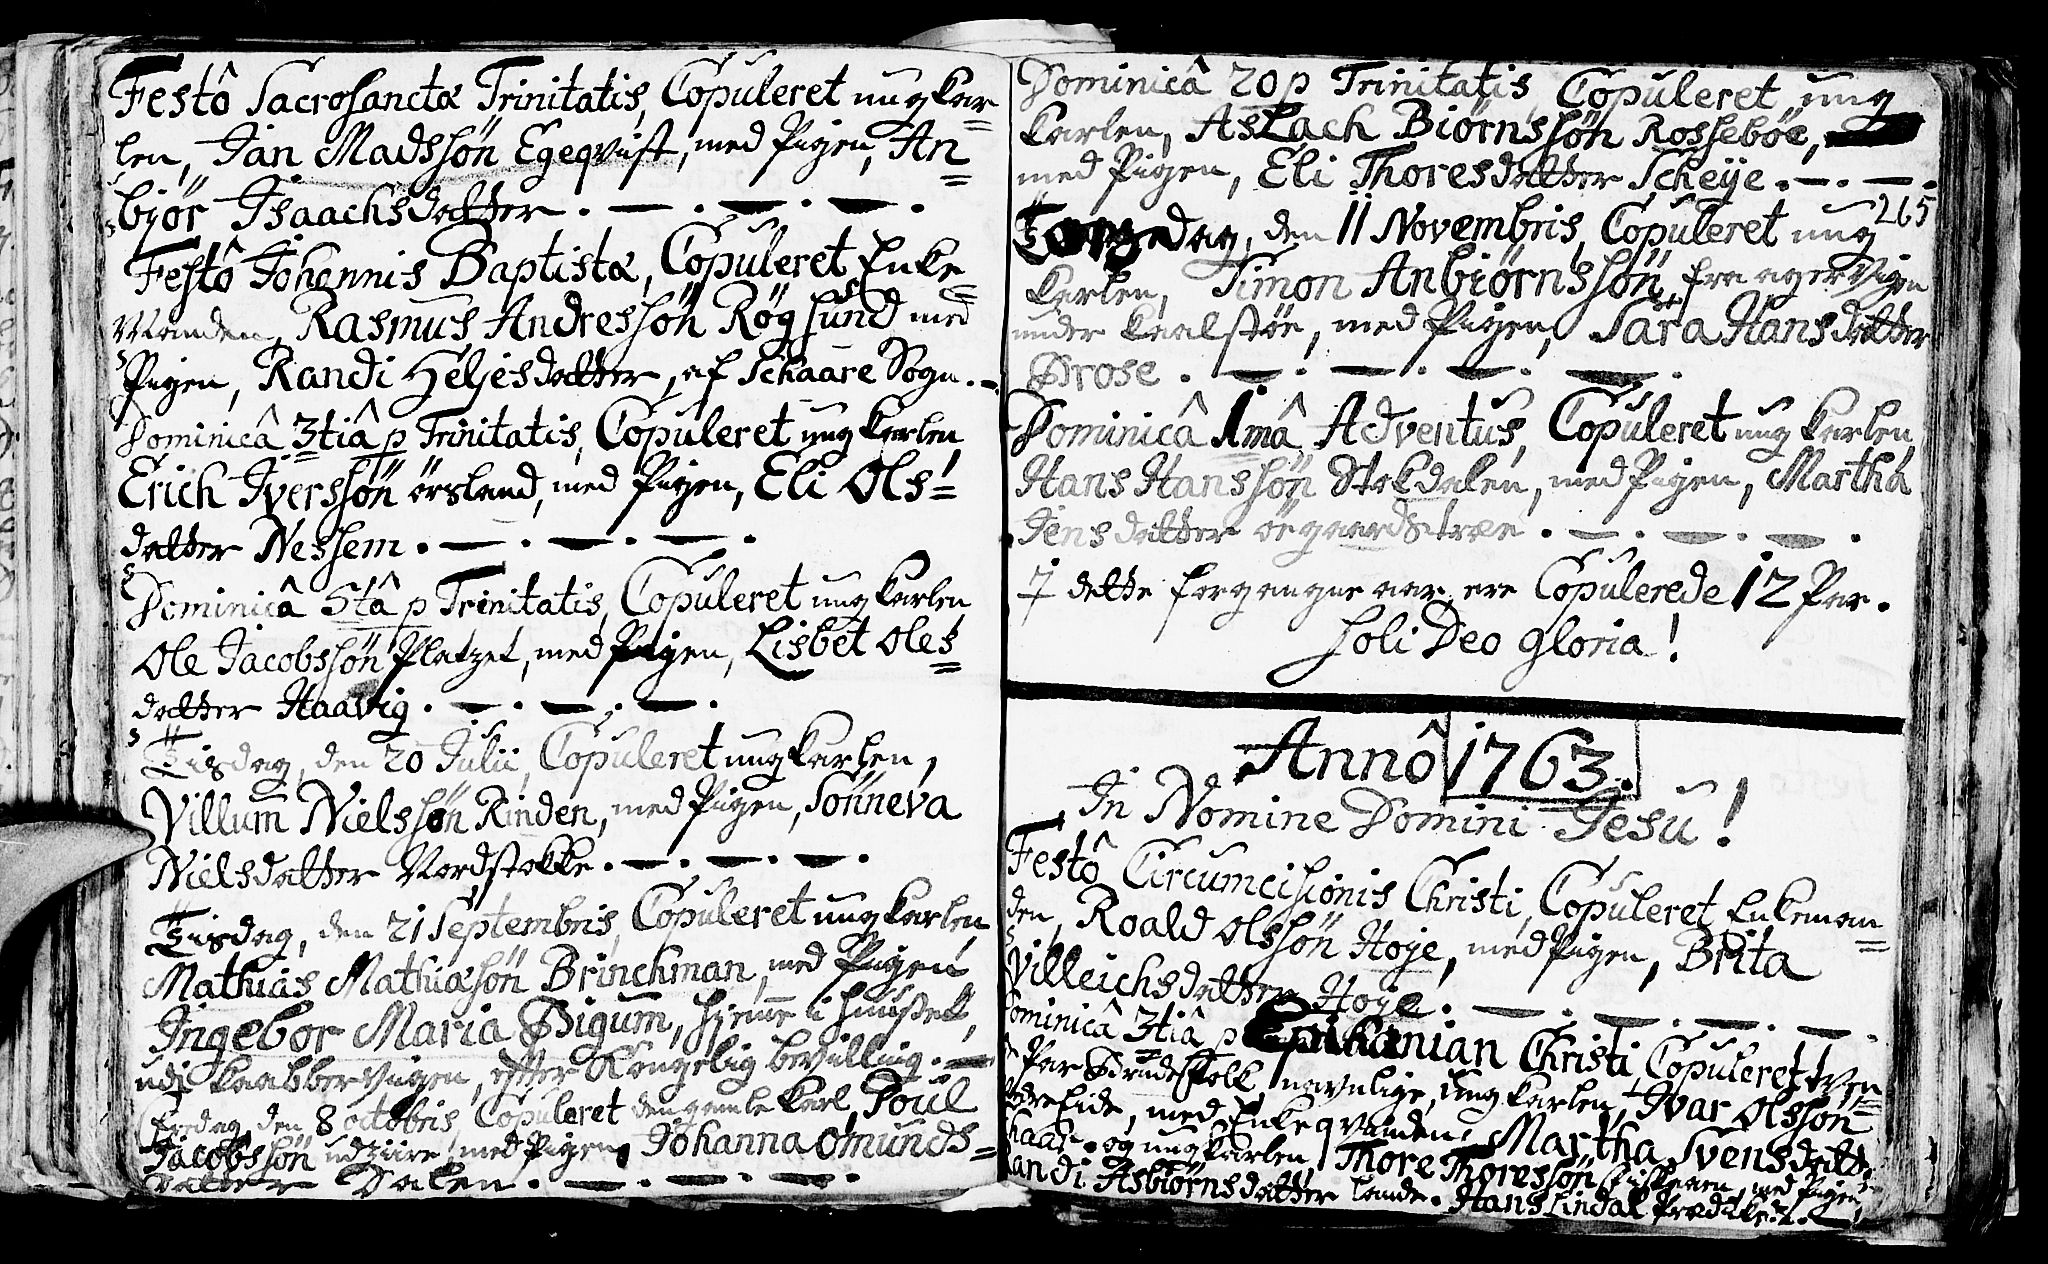 Festô Sacrosanctæ Trinitatis, Copuleret ung Kar=
len, Jan Madssøn Egeqvist, med Pigen, An=
bjør Isaachsdatter.
Festô Johannis Baptistæ, Copuleret Enke=
Manden, Rasmus Andressøn Røgsund med
Pigen, Randi Heljesdatter, af Schaare Sogn.
Dominicâ 3tiâ p Trinitatis, Copuleret ung Karlen,
Erich Iverssøn örsland, med Pigen, Eli Ols=
datter Nessem.
Dominicâ 5tâ p Trinitatis, Copuleret ung Karlen
Ole Jacobssøn Platzet, med Pigen, Lisbet Oles=
datter Haavig.
Tisdag, den 20 Julii, Copuleret ung Karlen,
Villum Nielssøn Rinden, med Pigen, Sönneva
Nielsdatter Nordstokke.
Tisdag, den 21 Septembris, Copuleret ung Karlen,
Mathias Mathiasøn Brinchman, med Pigen
Ingebor Maria Digum, hjeme i Huuset,
udi Kaabbervigen, efter Kongelig bevilling.
Fredag, den 8 octobris, Copuleret den gamle Karl, Poül
Jacobssøn med Pigen, Johanna Omunds=
datter Dalen.
Dominicâ 20 p Trinitatis, Copuleret ung
Karlen, Aslach Biørnssøn Rossebøe,
med Pigen, Eli Thoresdatter Scheije.
265
Torsdag, den 11 Novembris, Copuleret ung
Karlen, Simon Anbiørnssøn, fra agervigen
under Kaalstøe, med Pigen, Sara Hansdatter
Drose.
Dominicâ 1mâ Adventus, Copuleret ung Karlen,
Hans Hanssøn Stokdalen, med Pigen, Martha
Jensdatter øegaardstræe.
I dette forgangne aar, ere Copulerede 12 Par.
Soli Deo Gloria!
Annô 1763.
In Nomine Domini Jesu!
Festô Circumcisionis Christi, Copuleret Enkeman=
den, Roald Olssøn Hoje, med Pigen, Brita
Villeichsdatter Hoje.
Dominicâ 3tiâ p Epihanian Christi Copuleret tven
Par Brudefolk, navnlige, ung Karlen, Ivar Olssøn
med Enkeqvinden, Martha Svensdatter
og ung Karlen, Thore Thoressøn med Pigen,
Randi Asbiørnsdatter Lande. Hans Lindal Prædike.